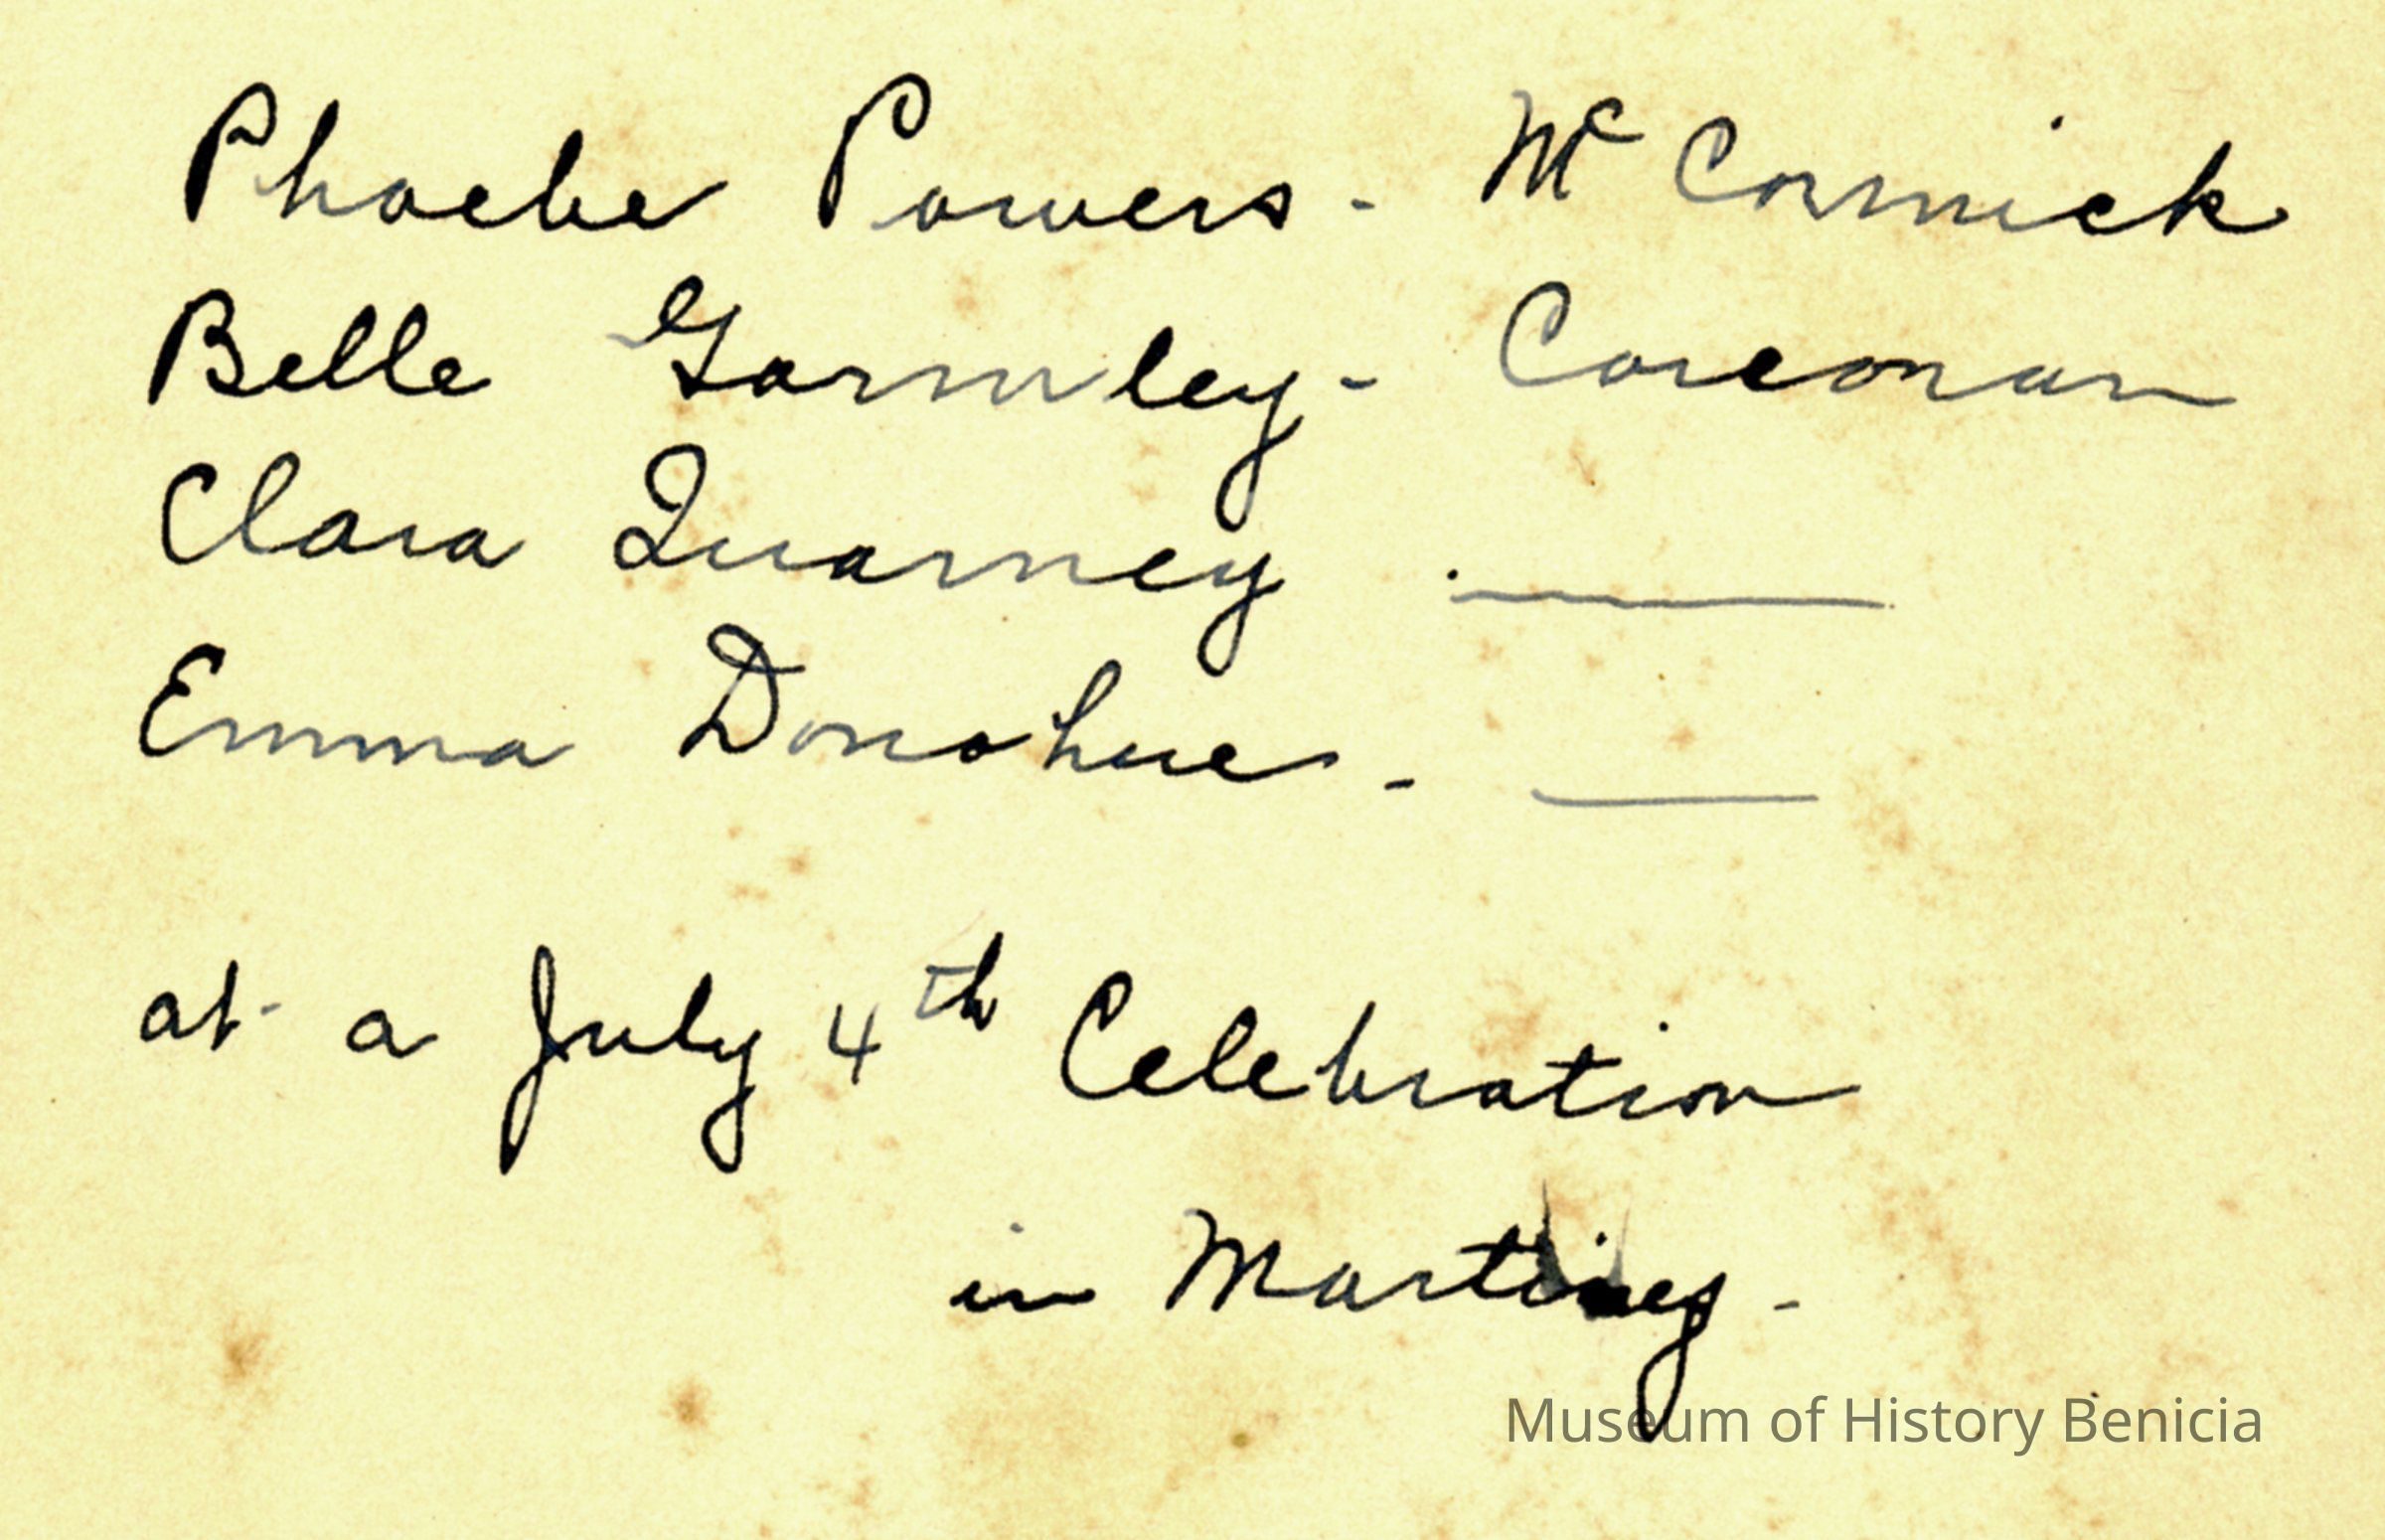 Phoebe Powers - Mc Cormick
Belle Gormley - Corcoran
Clara Quarney . ——
Emma Donohue . - ——
at a July 4th Celebration
in Martinez -
Museum of History Benicia